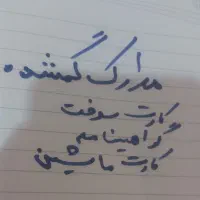 مدارک گمشده.
کارت سوخت
گواهینامه
کارت ماشین